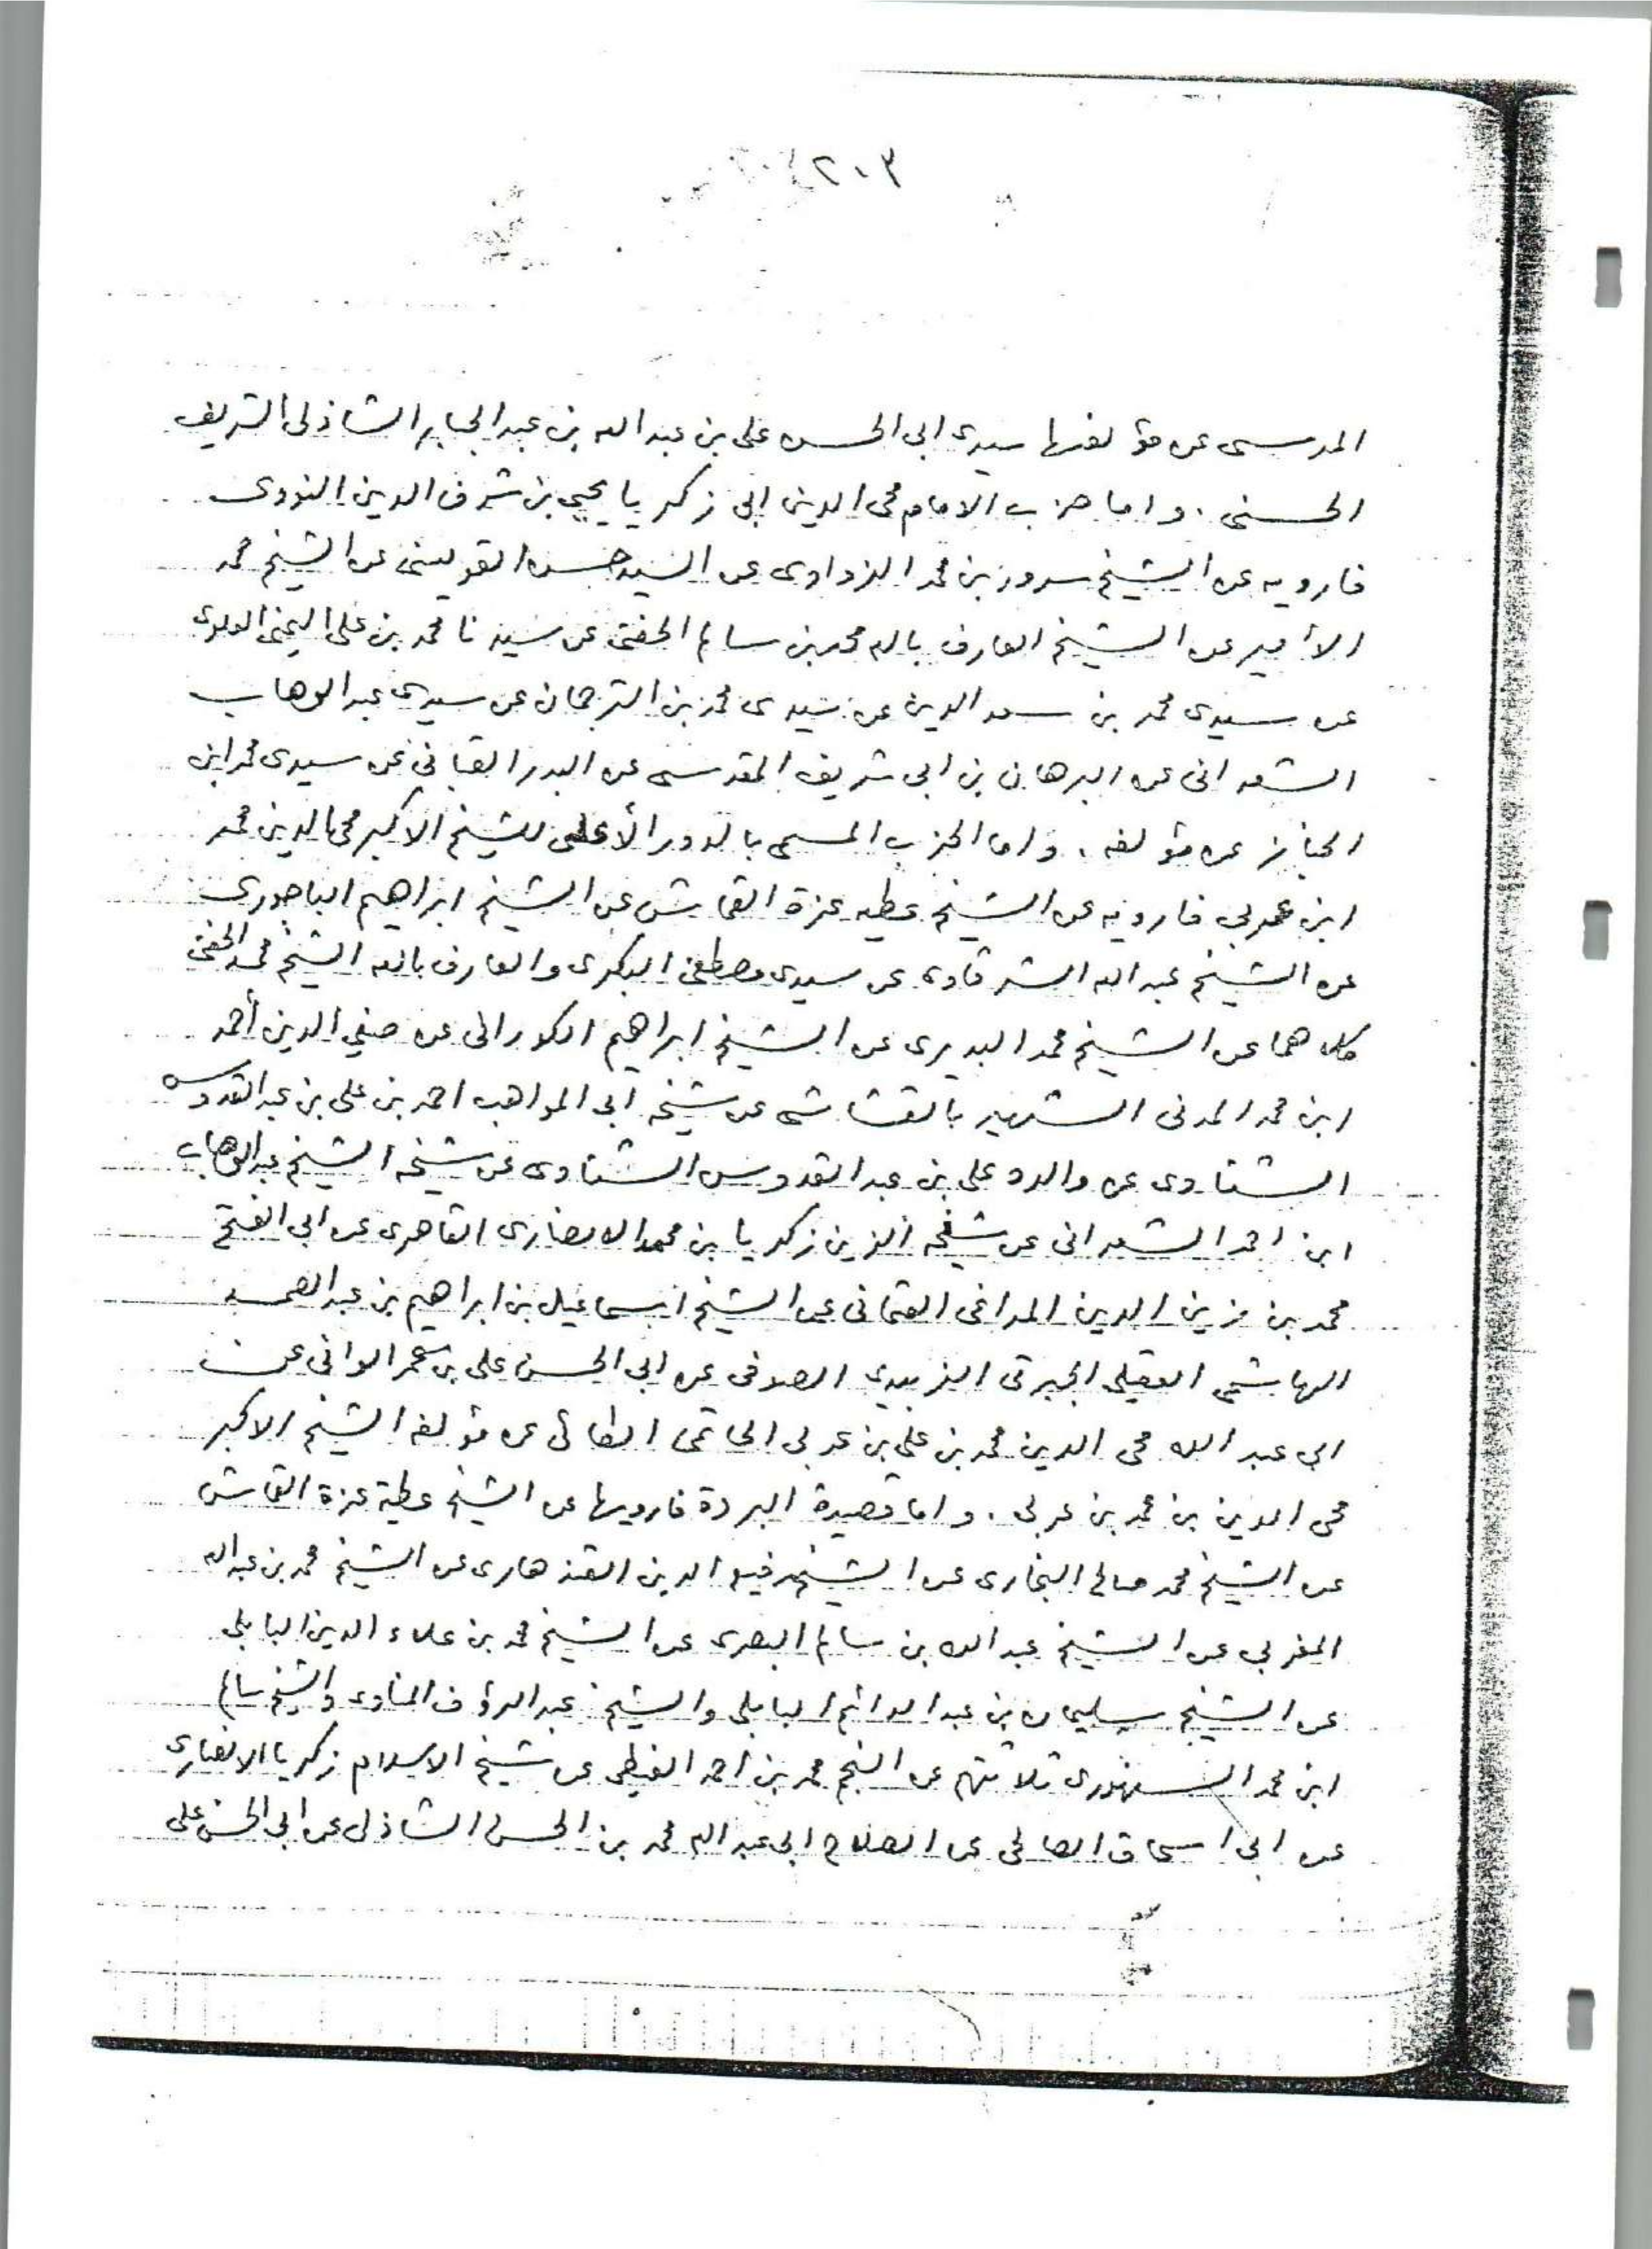 ٢٠٣
المرسى عن مؤلفها سيدى ابى الحسن على بن عبد الله بن عبد الجبار الشاذلى الشريف
الحسنى . واما حزب الامام محى الدين ابى زكريا يحيى بن شرف الدين النووى
فارويه عن الشيخ سرور بن محمد الزواوى عن السيد حسن القويسنى عن الشيخ محمد
الأمير عن الشيخ العارف بالله محمد بن سالم الحفنى عن سيدنا محمد بن على اليمنى العلوى
عن سيدى محمد بن سعد الدين عن سيدى محمد بن الترجمان عن سيدى عبد الوهاب
الشعرانى عن البرهان بن ابى شريف المقدسى عن البدر القبانى عن سيدى محمد ابن
الخباز عن مؤلفه . واما الحزب المسمى بالدور الأعلى للشيخ الاكبر محى الدين محمد
ابن عربي فارويه عن الشيخ عطيه عزة القماش عن الشيخ ابراهيم الباجورى
عن الشيخ عبد الله الشرقاوى عن سيدى مصطفى البكرى والعارف بالله الشيخ محمد الحفنى
كلاهما عن الشيخ محمد البديرى عن الشيخ ابراهيم الكورانى عن صفي الدين أحمد
ابن محمد المدنى الشهير بالقشاشى عن شيخه ابى المواهب احمد بن على بن عبد القدوس
الشناوى عن والده على بن عبد القدوس الشناوى عن شيخه الشيخ عبد الوهاب
ابن احمد الشعرانى عن شيخه الزين زكريا بن محمد الانصارى القاهرى عن ابى الفتح
محمد بن زين الدين المراغى العثمانى عن الشيخ اسماعيل بن ابراهيم بن عبد الصمد
الهاشمى العقيلى الجبرتى الزبيدى الصوفى عن ابى الحسن على بن عمر الوانى عن
ابى عبد الله محى الدين محمد بن على بن عربى الحاتمى الطائى عن مؤلفه الشيخ الاكبر
محى الدين بن محمد بن عربى . واما قصيدة البردة فارويها عن الشيخ عطية عزة القماش
عن الشيخ محمد صالح البخارى عن الشيخ رفيع الدين القندهارى عن الشيخ محمد بن عبد الله
المغربى عن الشيخ عبد الله بن سالم البصرى عن الشيخ محمد بن علاء الدين البابلى
عن الشيخ سليمان بن عبد الدائم البابلى والشيخ عبد الرؤف المناوى والشيخ سالم
ابن محمد السنهورى ثلاثتهم عن النجم محمد بن أحمد الغيطى عن شيخ الاسلام زكريا الانصارى
عن ابى اسحاق الصالحى عن الصلاح ابى عبد الله محمد بن الحسن الشاذلى عن ابى الحسن على